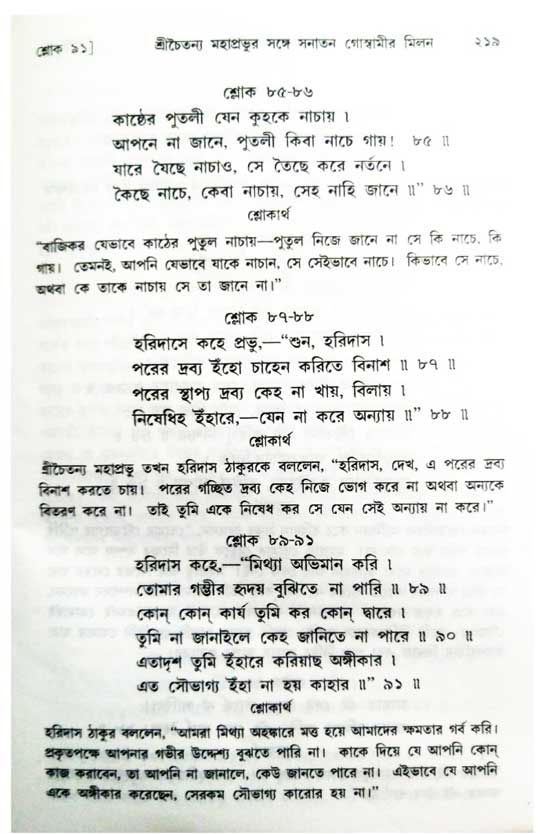 শ্লোক ৯১]
শ্রীচৈতন্য মহাপ্রভুর সঙ্গে সনাতন গোস্বামীর মিলন
২১৯
শ্লোক ৮৫-৮৬
কাষ্ঠের পুতলী যেন কুহকে নাচায় ।
আপনে না জানে, পুতলী কিবা নাচে গায়! ৮৫ ॥
যারে যৈছে নাচাও, সে তৈছে করে নর্তনে ।
কৈছে নাচে, কেবা নাচায়, সেহ নাহি জানে ॥” ৮৬ ॥
শ্লোকার্থ
“বাজিকর যেভাবে কাঠের পুতুল নাচায়—পুতুল নিজে জানে না সে কি নাচে, কি
গায়। তেমনই, আপনি যেভাবে যাকে নাচান, সে সেইভাবে নাচে। কিভাবে সে নাচে,
অথবা কে তাকে নাচায় সে তা জানে না।”
শ্লোক ৮৭-৮৮
হরিদাসে কহে প্রভু,—“শুন, হরিদাস ।
পরের দ্রব্য ইঁহো চাহেন করিতে বিনাশ ॥ ৮৭ ॥
পরের স্থাপ্য দ্রব্য কেহ না খায়, বিলায় ।
নিষেধিহ ইঁহারে,—যেন না করে অন্যায় ॥” ৮৮ ॥
শ্লোকার্থ
শ্রীচৈতন্য মহাপ্রভু তখন হরিদাস ঠাকুরকে বললেন, “হরিদাস, দেখ, এ পরের দ্রব্য
বিনাশ করতে চায়। পরের গচ্ছিত দ্রব্য কেহ নিজে ভোগ করে না অথবা অন্যকে
বিতরণ করে না। তাই তুমি একে নিষেধ কর সে যেন সেই অন্যায় না করে।”
শ্লোক ৮৯-৯১
হরিদাস কহে,—“মিথ্যা অভিমান করি ।
তোমার গম্ভীর হৃদয় বুঝিতে না পারি ॥ ৮৯ ॥
কোন্ কোন্ কার্য তুমি কর কোন্ দ্বারে ।
তুমি না জানাইলে কেহ জানিতে না পারে ॥ ৯০ ॥
এতাদৃশ তুমি ইঁহারে করিয়াছ অঙ্গীকার ।
এত সৌভাগ্য ইঁহা না হয় কাহার ॥” ৯১ ॥
শ্লোকার্থ
হরিদাস ঠাকুর বললেন, “আমরা মিথ্যা অহঙ্কারে মত্ত হয়ে আমাদের ক্ষমতার গর্ব করি।
প্রকৃতপক্ষে আপনার গভীর উদ্দেশ্য বুঝতে পারি না। কাকে দিয়ে যে আপনি কোন্
কাজ করাবেন, তা আপনি না জানালে, কেউ জানতে পারে না। এইভাবে যে আপনি
একে অঙ্গীকার করেছেন, সেরকম সৌভাগ্য কারোর হয় না।”